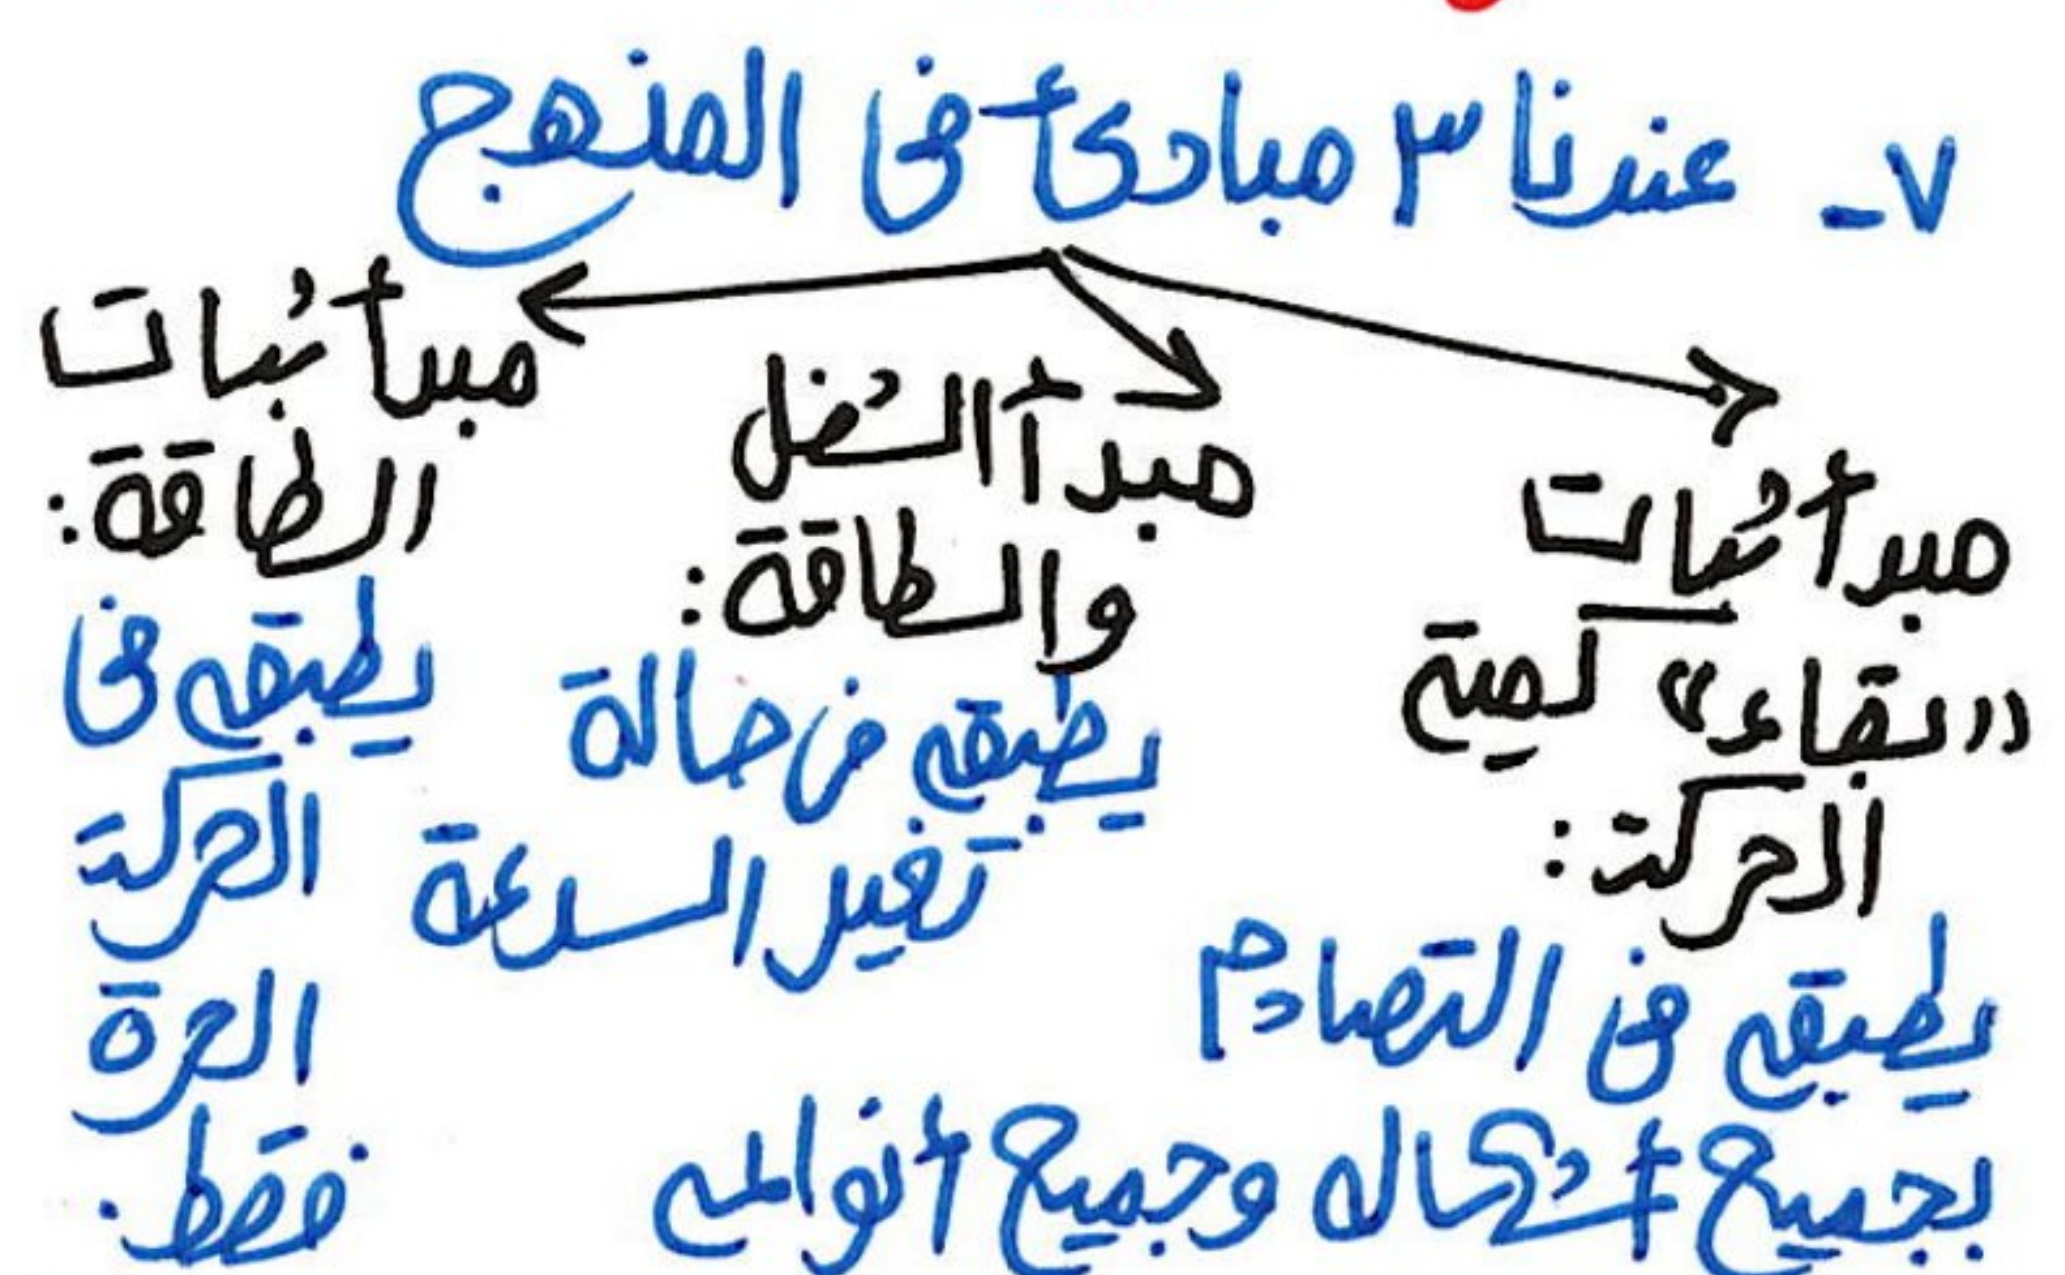 ٧ـ عندنا ٣ مبادئ في المنهج
مبدأ ثبات
"بقاء" كمية
الحركة:
يطبق في التصادم
بجميع أشكاله وجميع أنواعه
مبدأ الشغل
والطاقة:
يطبق في حالة
تغير السرعة
مبدأ ثبات
الطاقة:
يطبق في
الحركة
الحرة
فقط.